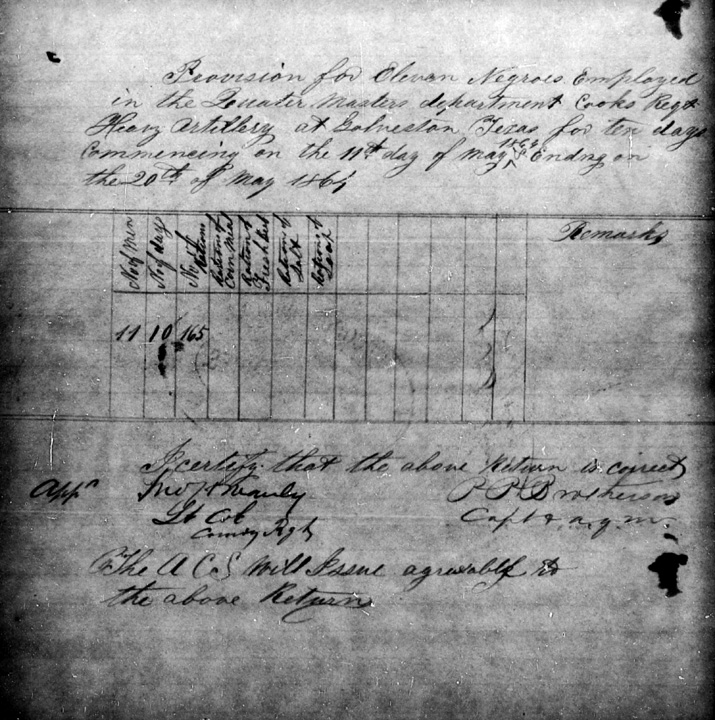 Provision for Elevan Negroes Employed
in the Quater Masters department Cooks Regt
Heavy Artillery at Galveston Texas for ten days
Commencing on the 11th day of May 1864 & Endng on
the 20th of May 1864
No of Men
No of days
No of Rations
Rations of Corn Meal
Rations of Fresh Beef
Rations of Salt
Rations of Soap
Remarks
11 10 165
I certify that the above Return is correct
App
Jno H Manly
P P Brotherson
Lt Col
Capt & a.q.m.
Comdg Regt
The A C S will Issue agreeably to
the above Return